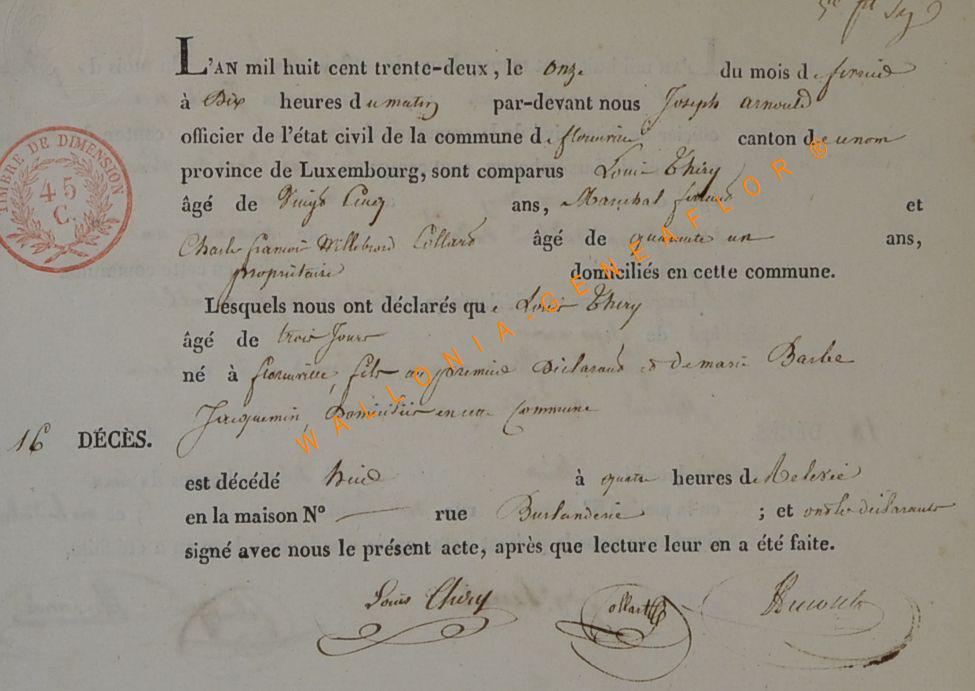 L'AN mil huit cent trente-deux, le onze du mois de fevrier
à Dix heures du matin par-devant nous Joseph arnould
officier de l'état civil de la commune de florenville canton de
province de Luxembourg, sont comparus Louis Thiry
âgé de Vingt Cinq ans, Marechal ferrand et
Charle francois Willebrord Collard âgé de quarante un ans,
propriétaire domiciliés en cette commune.
Lesquels nous ont déclarés que Louis Thiry
âgé de trois Jours
né à florenville, fils du premier Déclarant et de marie Barbe
Jacquemin, Domiciliés en cette Commune
16 DÉCÈS.
est décédé hier à quatre heures de Relevée
en la maison N° — rue ; et ont les déclarants
signé avec nous le présent acte, après que lecture leur en a été faite.
Louis Thiry Collard Arnould
TIMBRE DE DIMENSION
45
C.
WALLONIA-GENEAFLOR ©